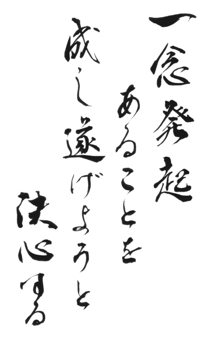 一念発起
あることを
成し遂げようと
決心する